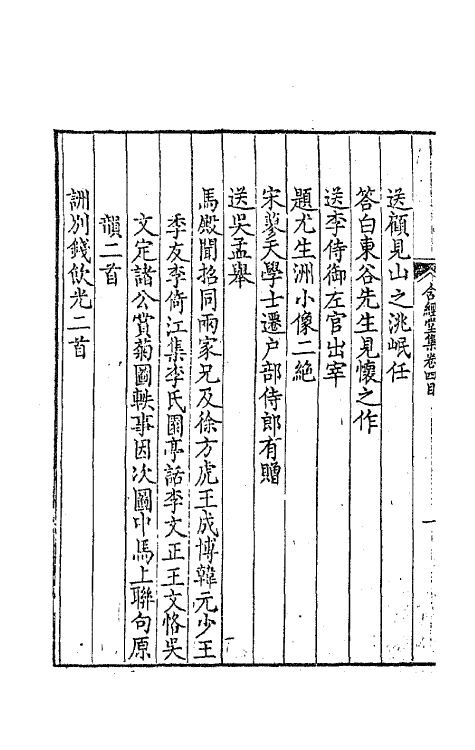 含經堂集卷四目
一
送顧見山之洮岷任
答白東谷先生見懷之作
送李侍御左官出宰
題尤生洲小像二絶
宋蓼天學士遷户部侍郎有贈
送吳孟舉
馬殿聞招同兩家兄及徐方虎王成博韓元少王
季友李倚江集李氏園亭話李文正王文恪吳
文定諸公賞菊圖軼事因次圖中馬上聯句原
韻二首
詶別錢飲光二首